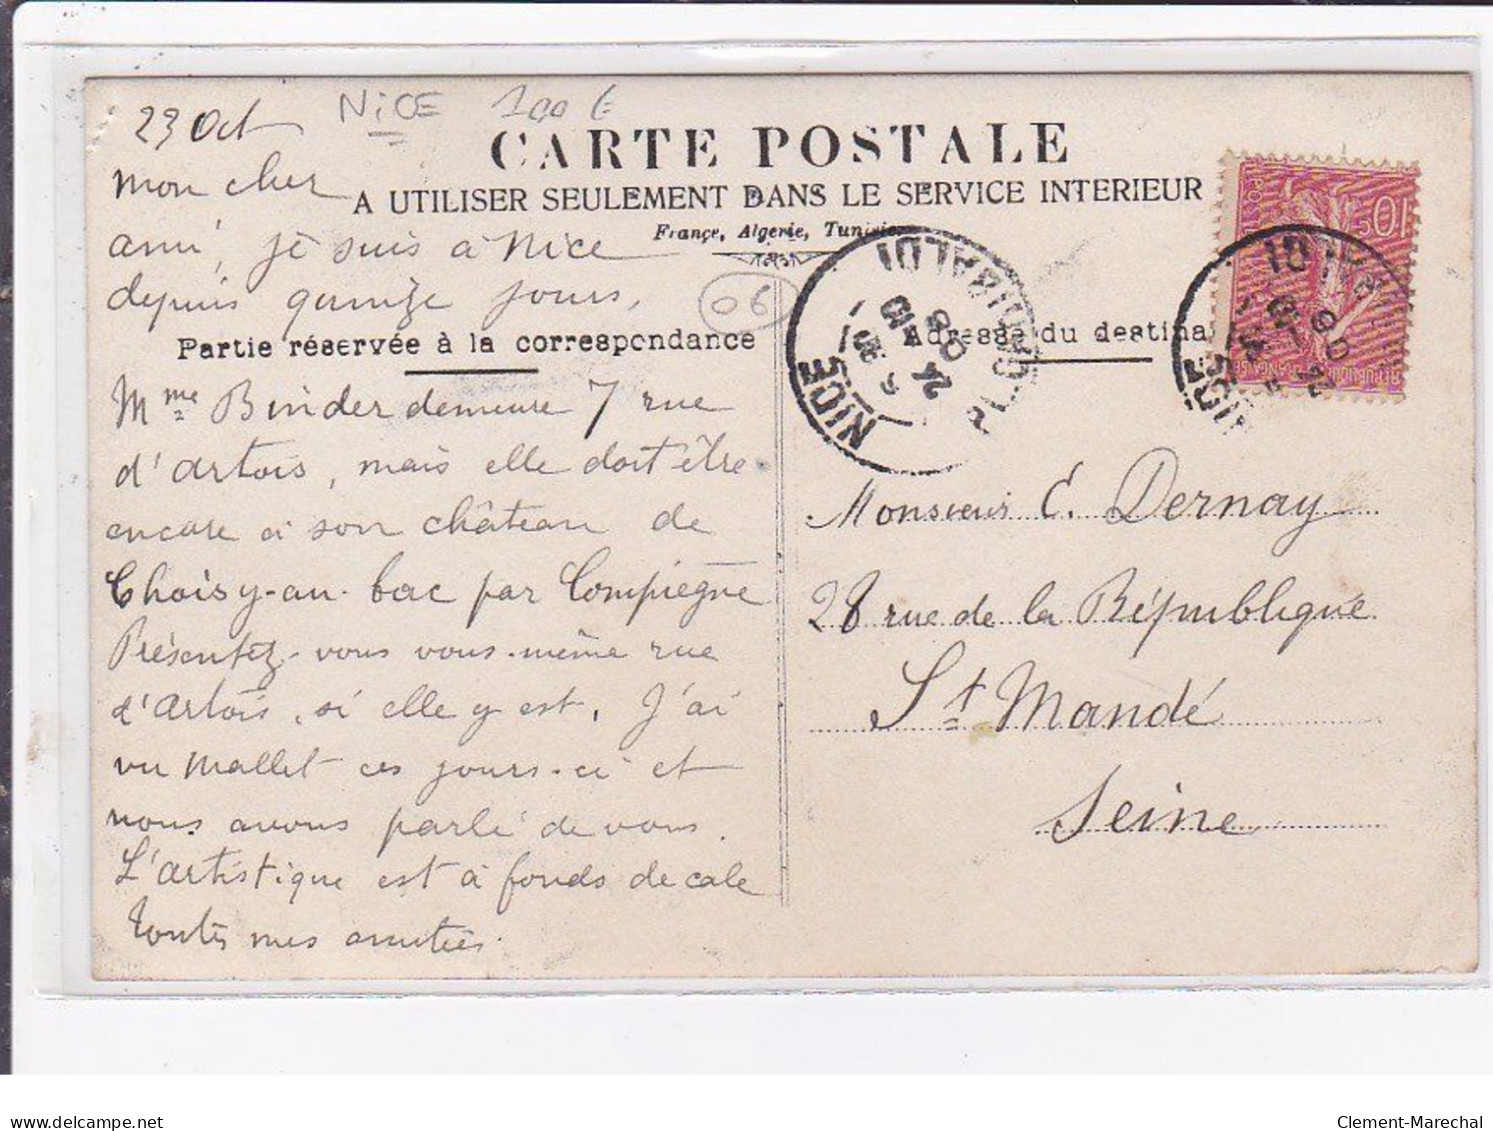 NiCE 100 €
23 Oct
CARTE POSTALE
A UTILISER SEULEMENT DANS LE SERVICE INTERIEUR
France, Algerie, Tunisie
mon cher
ami, je suis à Nice
depuis quinze jours,
06
Partie réservée à la correspondance
Mme Binder demeure 7 rue
d'artois, mais elle doit être
encore à son château de
Choisy-au-bac par Compiègne
Présentez-vous vous-même rue
d'artois, si elle y est. J'ai
vu Mallet ces jours-ci et
nous avons parlé de vous.
L'artistique est à fonds de cale
Toutes mes amitiés.
Adresse du destina
NICE
GARIBALDI
24 -10
08
10c
POSTES
REPUBLIQUE FRANÇAISE
NICE
Monsieur E. Dernay
28 rue de la République
St Mandé
Seine
delcampe.net
Clement-Marechal